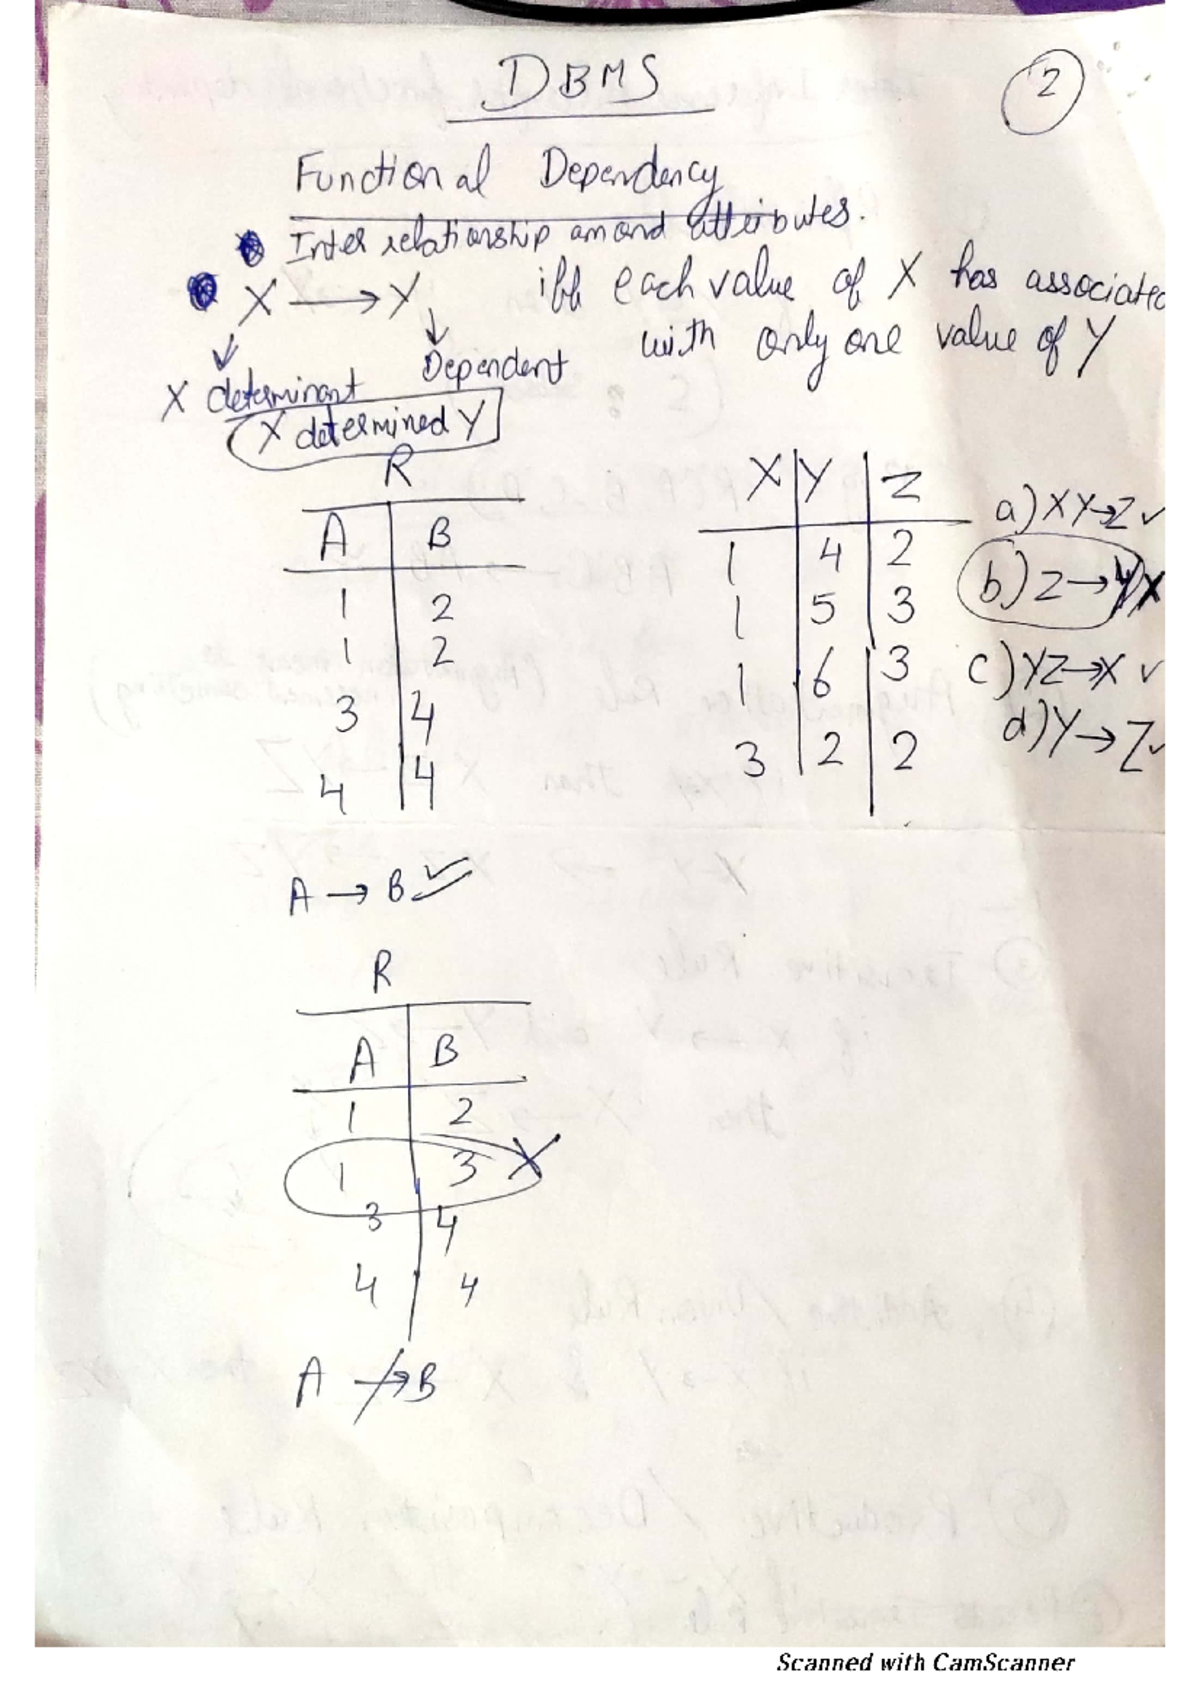 DBMS
2
Functional Dependency
Inter relationship amond attributes.
X → Y iff each value of X has associated
with only one value of Y
Dependent
X determinant
X determined Y
R
A B
1 2
1 2
3 4
4 4
X Y Z
1 4 2
1 5 3
1 6 3
3 2 2
a) XY→Z ✓
b) Z→ X
c) YZ→X ✓
d) Y→Z ✓
A → B ✓
R
A B
1 2
1 3 X
3 4
4 4
A ↛ B
Scanned with CamScanner